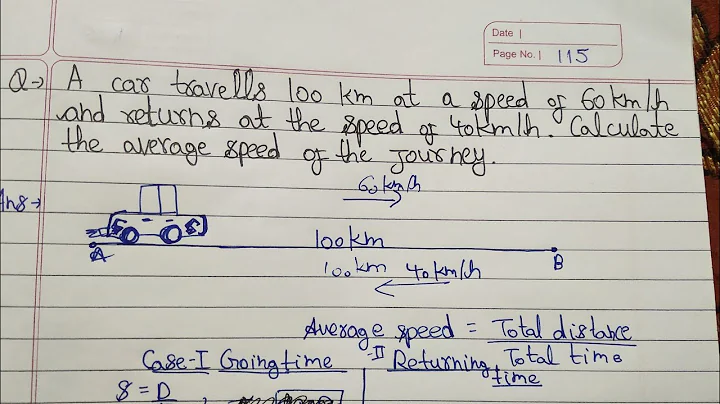 Date |
Page No. | 115
Q→ A car travells 100 km at a speed of 60 km/h
and returns at the speed of 40km/h. Calculate
the average speed of the journey.
60 km/h
Ans→
100km
A
B
100km 40km/h
Average speed = Total distance
Total time
Case-I Going time
-II Returning time
S = D